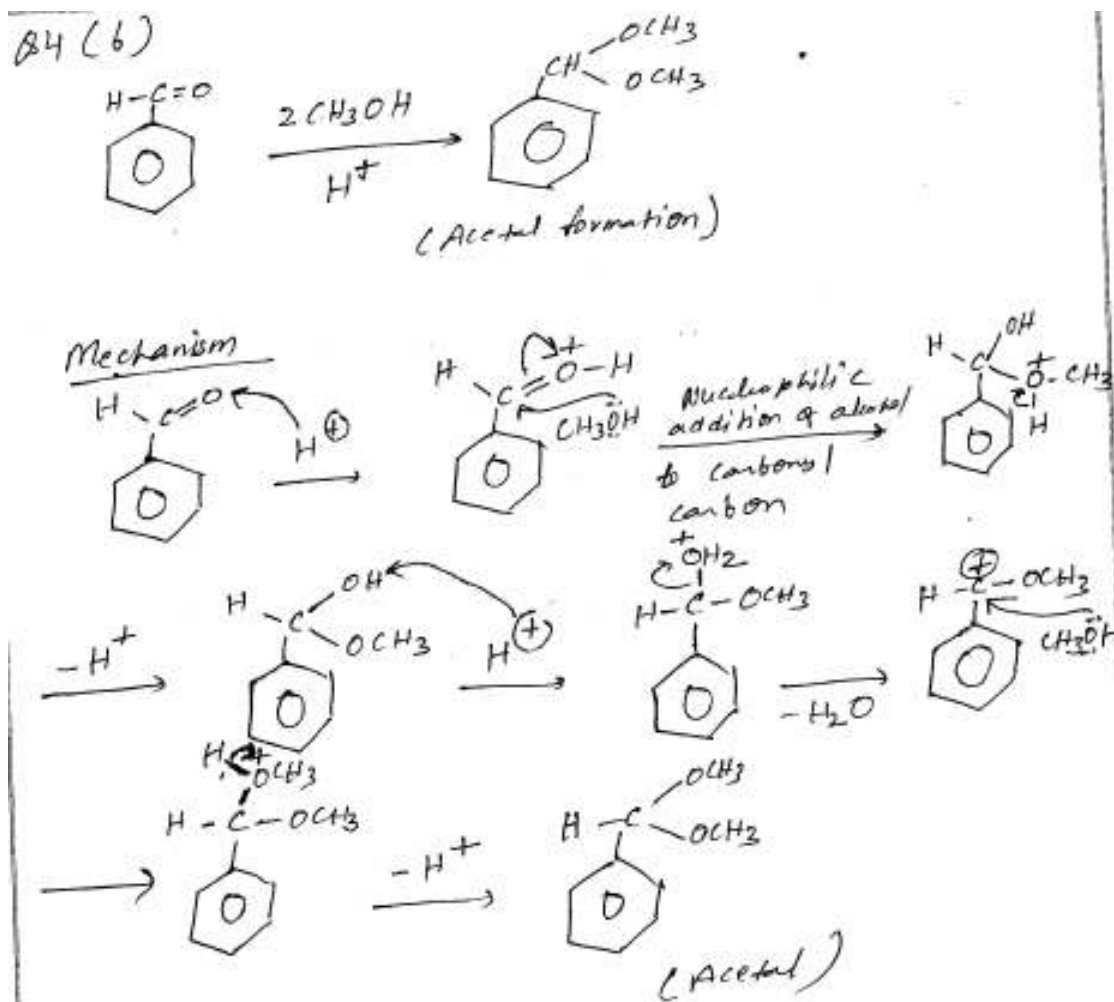 Q4 (b)
H-C=O
2CH3OH
H+
CH
OCH3
OCH3
(Acetal formation)
Mechanism
H C=O
H+
H C=O-H
+
CH3ÖH
Nucleophilic
addition of alcohol
to carbonyl
carbon
H C OH
+
O-CH3
H
-H+
H C OH
OCH3
H+
+
OH2
H-C-OCH3
-H2O
+
H-C-OCH3
CH3ÖH
H +
OCH3
H-C-OCH3
-H+
H-C OCH3
OCH3
(Acetal)